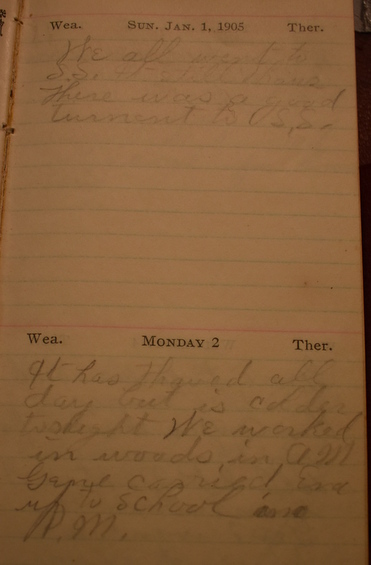 Wea. SUN. JAN. 1, 1905 Ther.
We all went to
S.S.
There was a good
turnent to S.S.
Wea. MONDAY 2 Ther.
It has thawed all
day but is colder
tonight We worked
in woods in A.M
Gene carried
up to School
P.M.